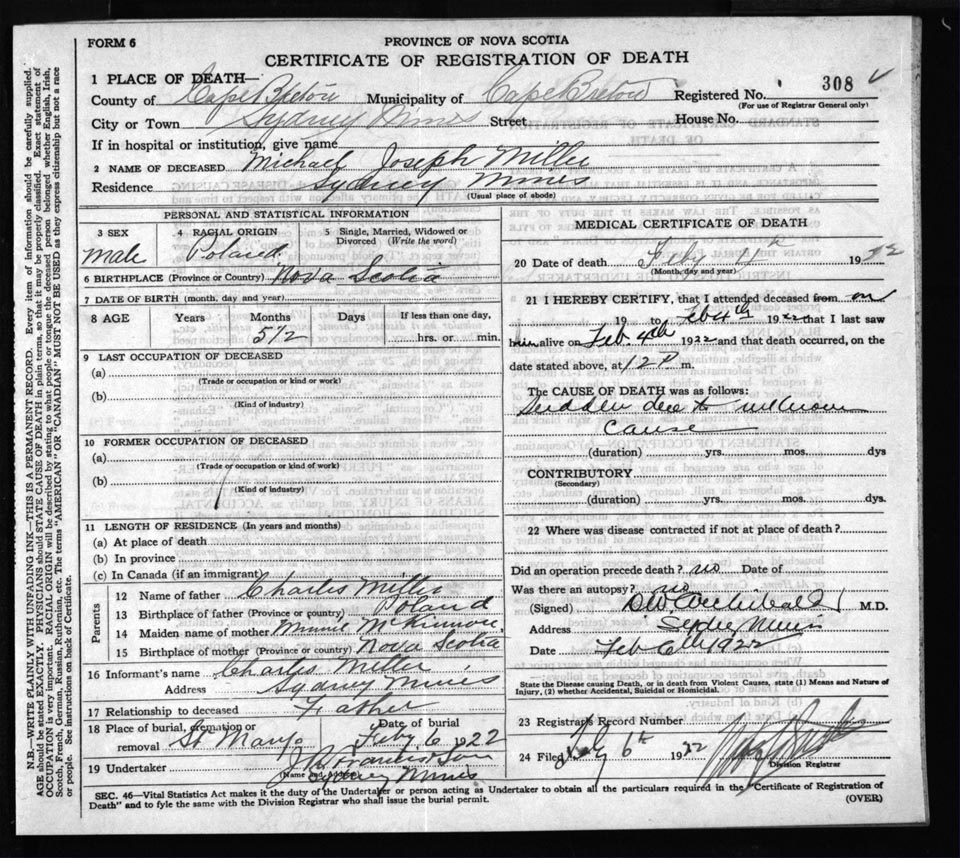 FORM 6
PROVINCE OF NOVA SCOTIA
CERTIFICATE OF REGISTRATION OF DEATH
1 PLACE OF DEATH—
County of Cape Breton Municipality of Cape Breton Registered No. 308
(For use of Registrar General only)
City or Town Sydney Mines Street House No.
If in hospital or institution, give name
2 NAME OF DECEASED Michael Joseph Miller
Residence Sydney Mines
(Usual place of abode)
PERSONAL AND STATISTICAL INFORMATION
3 SEX 4 RACIAL ORIGIN 5 Single, Married, Widowed or Divorced (Write the word)
Male Poland
6 BIRTHPLACE (Province or Country) Nova Scotia
7 DATE OF BIRTH (month, day and year)
8 AGE Years Months Days If less than one day,
5 1/2 hrs. or min.
9 LAST OCCUPATION OF DECEASED
(a)
(Trade or occupation or kind of work)
(b)
(Kind of industry)
10 FORMER OCCUPATION OF DECEASED
(a)
(Trade or occupation or kind of work)
(b)
(Kind of industry)
11 LENGTH OF RESIDENCE (In years and months)
(a) At place of death
(b) In province
(c) In Canada (if an immigrant)
Parents
12 Name of father Charles Miller
13 Birthplace of father (Province or country) Poland
14 Maiden name of mother Minnie McKinnon
15 Birthplace of mother (Province or country) Nova Scotia
16 Informant's name Charles Miller
Address Sydney Mines
17 Relationship to deceased Father
18 Place of burial, cremation or removal St Marys Date of burial Feby 6 1922
19 Undertaker J R Francis & Son
(Name and address) Sydney Mines
MEDICAL CERTIFICATE OF DEATH
20 Date of death Feby 1922
(Month, day and year)
21 I HEREBY CERTIFY, that I attended deceased from on
19 to Feb 4th 1922 that I last saw
him alive on Feb 4th 1922 and that death occurred, on the
date stated above, at 12 P m.
The CAUSE OF DEATH was as follows:
Sudden due to unknown
cause
(duration) yrs. mos. dys
CONTRIBUTORY
(Secondary)
(duration) yrs. mos. dys.
22 Where was disease contracted if not at place of death?
Did an operation precede death? no Date of
Was there an autopsy? no
(Signed) Archibald M.D.
Address Sydney Mines
Date Feb 6th 1922
State the Disease causing Death, or in death from Violent Causes, state (1) Means and Nature of
Injury, (2) whether Accidental, Suicidal or Homicidal.
23 Registrar's Record Number
24 Filed Feby 6th 1922
Division Registrar
SEC. 46—Vital Statistics Act makes it the duty of the Undertaker or person acting as Undertaker to obtain all the particulars required in the "Certificate of Registration of
Death" and to fyle the same with the Division Registrar who shall issue the burial permit.
(OVER)
N.B.—WRITE PLAINLY WITH UNFADING INK—THIS IS A PERMANENT RECORD. Every item of information should be carefully supplied.
AGE should be stated EXACTLY. PHYSICIANS should STATE CAUSE OF DEATH in plain terms, so that it may be properly classified. Exact statement of
OCCUPATION is very important. RACIAL ORIGIN will be described by stating to what people or tongue the deceased person belonged whether English, Irish,
Scotch, French, German, Russian, Ruthenian, etc. The terms "AMERICAN" OR "CANADIAN" MUST NOT BE USED as they express citizenship but not a race
or people. See instructions on back of Certificate.